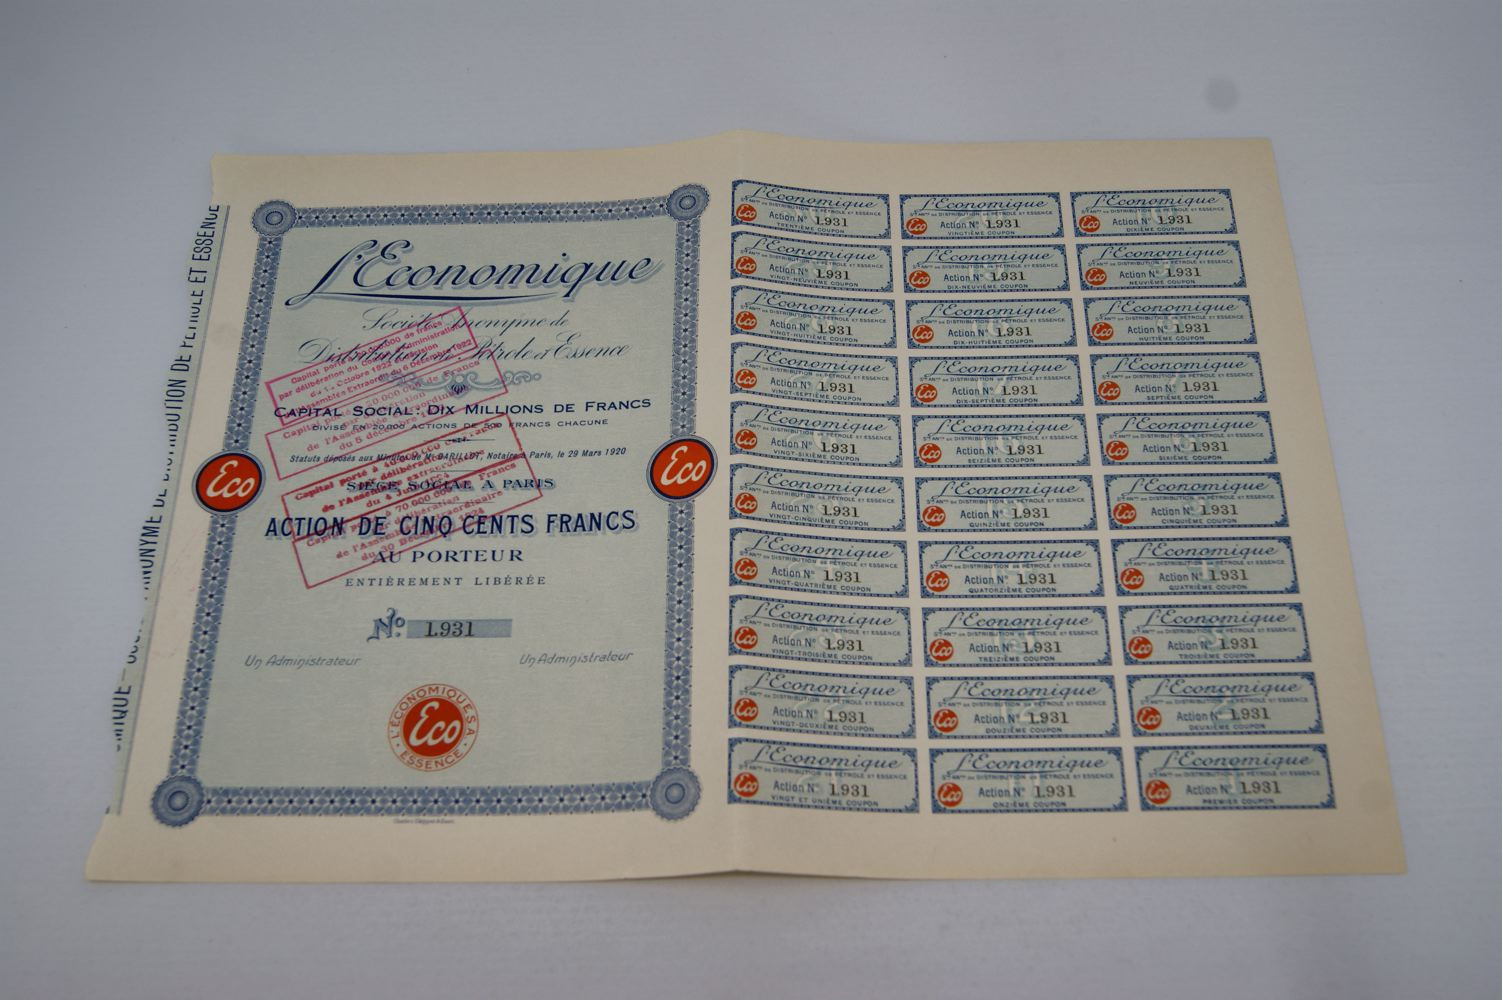 L'Economique
Société Anonyme de
Distribution de Pétrole et Essence
CAPITAL SOCIAL: DIX MILLIONS DE FRANCS
DIVISÉ EN 20.000 ACTIONS DE 500 FRANCS CHACUNE
Statuts déposés aux Minutes de Me BARILLOT, Notaire à Paris, le 29 Mars 1920
SIÈGE SOCIAL A PARIS
ACTION DE CINQ CENTS FRANCS
AU PORTEUR
ENTIÈREMENT LIBÉRÉE
No. 1.931
Un Administrateur Un Administrateur
L'ÉCONOMIQUE S.A.
Eco
ESSENCE
Eco
Eco
DE DISTRIBUTION DE PÉTROLE ET ESSENCE
L'Economique
Sté ANme DE DISTRIBUTION DE PÉTROLE ET ESSENCE
Eco Action No 1.931
TRENTIÈME COUPON
L'Economique
Sté ANme DE DISTRIBUTION DE PÉTROLE ET ESSENCE
Eco Action No 1.931
VINGTIÈME COUPON
L'Economique
Sté ANme DE DISTRIBUTION DE PÉTROLE ET ESSENCE
Eco Action No 1.931
DIXIÈME COUPON
L'Economique
Sté ANme DE DISTRIBUTION DE PÉTROLE ET ESSENCE
Eco Action No 1.931
VINGT-NEUVIÈME COUPON
L'Economique
Sté ANme DE DISTRIBUTION DE PÉTROLE ET ESSENCE
Eco Action No 1.931
DIX-NEUVIÈME COUPON
L'Economique
Sté ANme DE DISTRIBUTION DE PÉTROLE ET ESSENCE
Eco Action No 1.931
NEUVIÈME COUPON
L'Economique
Sté ANme DE DISTRIBUTION DE PÉTROLE ET ESSENCE
Eco Action No 1.931
VINGT-HUITIÈME COUPON
L'Economique
Sté ANme DE DISTRIBUTION DE PÉTROLE ET ESSENCE
Eco Action No 1.931
DIX-HUITIÈME COUPON
L'Economique
Sté ANme DE DISTRIBUTION DE PÉTROLE ET ESSENCE
Eco Action No 1.931
HUITIÈME COUPON
L'Economique
Sté ANme DE DISTRIBUTION DE PÉTROLE ET ESSENCE
Eco Action No 1.931
VINGT-SEPTIÈME COUPON
L'Economique
Sté ANme DE DISTRIBUTION DE PÉTROLE ET ESSENCE
Eco Action No 1.931
DIX-SEPTIÈME COUPON
L'Economique
Sté ANme DE DISTRIBUTION DE PÉTROLE ET ESSENCE
Eco Action No 1.931
SEPTIÈME COUPON
L'Economique
Sté ANme DE DISTRIBUTION DE PÉTROLE ET ESSENCE
Eco Action No 1.931
VINGT-SIXIÈME COUPON
L'Economique
Sté ANme DE DISTRIBUTION DE PÉTROLE ET ESSENCE
Eco Action No 1.931
SEIZIÈME COUPON
L'Economique
Sté ANme DE DISTRIBUTION DE PÉTROLE ET ESSENCE
Eco Action No 1.931
SIXIÈME COUPON
L'Economique
Sté ANme DE DISTRIBUTION DE PÉTROLE ET ESSENCE
Eco Action No 1.931
VINGT-CINQUIÈME COUPON
L'Economique
Sté ANme DE DISTRIBUTION DE PÉTROLE ET ESSENCE
Eco Action No 1.931
QUINZIÈME COUPON
L'Economique
Sté ANme DE DISTRIBUTION DE PÉTROLE ET ESSENCE
Eco Action No 1.931
CINQUIÈME COUPON
L'Economique
Sté ANme DE DISTRIBUTION DE PÉTROLE ET ESSENCE
Eco Action No 1.931
VINGT-QUATRIÈME COUPON
L'Economique
Sté ANme DE DISTRIBUTION DE PÉTROLE ET ESSENCE
Eco Action No 1.931
QUATORZIÈME COUPON
L'Economique
Sté ANme DE DISTRIBUTION DE PÉTROLE ET ESSENCE
Eco Action No 1.931
QUATRIÈME COUPON
L'Economique
Sté ANme DE DISTRIBUTION DE PÉTROLE ET ESSENCE
Eco Action No 1.931
VINGT-TROISIÈME COUPON
L'Economique
Sté ANme DE DISTRIBUTION DE PÉTROLE ET ESSENCE
Eco Action No 1.931
TREIZIÈME COUPON
L'Economique
Sté ANme DE DISTRIBUTION DE PÉTROLE ET ESSENCE
Eco Action No 1.931
TROISIÈME COUPON
L'Economique
Sté ANme DE DISTRIBUTION DE PÉTROLE ET ESSENCE
Eco Action No 1.931
VINGT-DEUXIÈME COUPON
L'Economique
Sté ANme DE DISTRIBUTION DE PÉTROLE ET ESSENCE
Eco Action No 1.931
DOUZIÈME COUPON
L'Economique
Sté ANme DE DISTRIBUTION DE PÉTROLE ET ESSENCE
Eco Action No 1.931
DEUXIÈME COUPON
L'Economique
Sté ANme DE DISTRIBUTION DE PÉTROLE ET ESSENCE
Eco Action No 1.931
VINGT ET UNIÈME COUPON
L'Economique
Sté ANme DE DISTRIBUTION DE PÉTROLE ET ESSENCE
Eco Action No 1.931
ONZIÈME COUPON
L'Economique
Sté ANme DE DISTRIBUTION DE PÉTROLE ET ESSENCE
Eco Action No 1.931
PREMIER COUPON